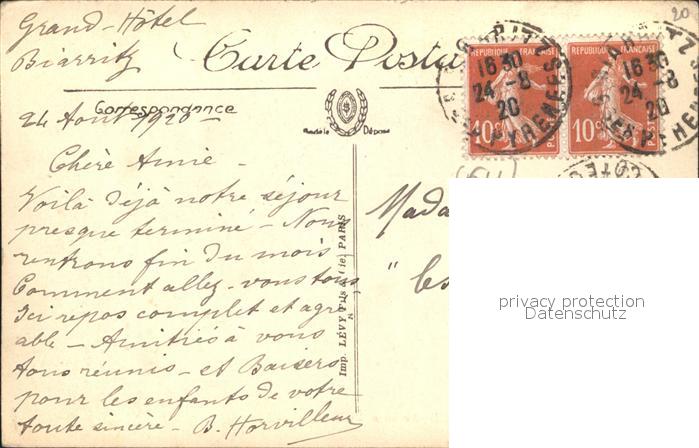 Grand-Hôtel
Biarritz
20
Carte Posta
Correspondance
Modèle Déposé
REPUBLIQUE FRANÇAISE
10c
POSTES
REPUBLIQUE FRANÇAISE
10c
POSTES
BIARRITZ
16 30
24 - 8
20
PYRENEES
16 30
24 - 8
20
24 Août 1920 -
Chère Amie -
Voilà déjà notre séjour
presque terminé - Nous
rentrons fin du mois
Comment allez-vous tous
Ici repos complet et agré
able - Amitiés à vous
tous réunis - et Baisers
pour les enfants de votre
toute sincère - B. Horvilleur
Imp. LÉVY Fils & Cie, PARIS
Mada
" Les
privacy protection
Datenschutz